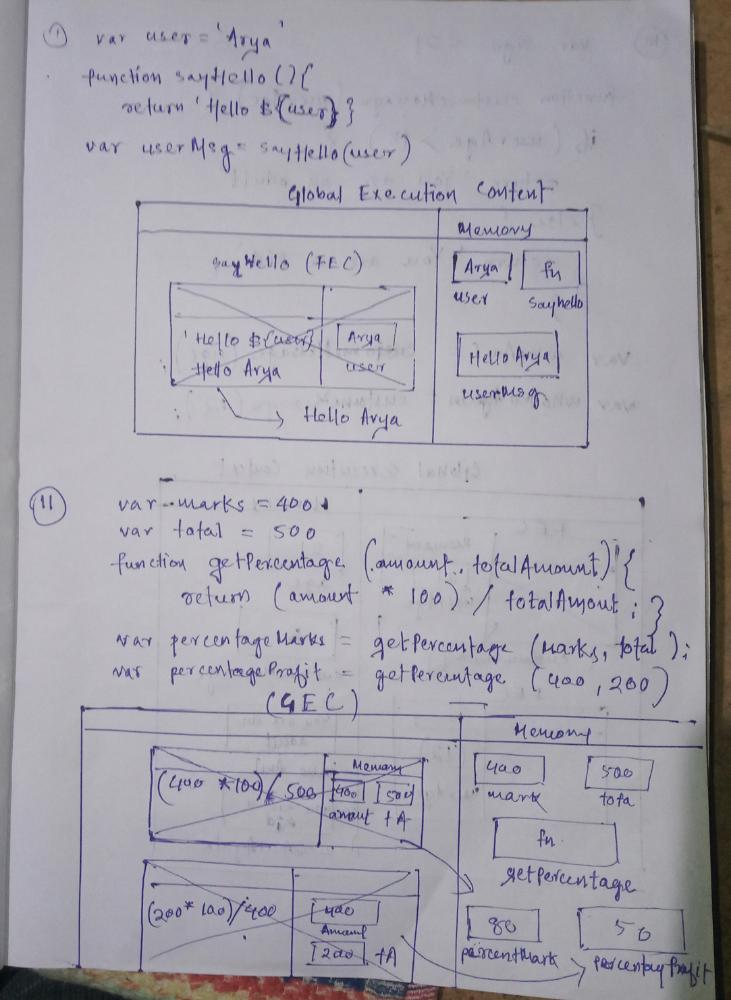 ① var user = 'Arya'
function sayHello () {
return 'Hello ${user} }
var userMsg = sayHello (user)
Global Execution Content
Memory
sayHello (FEC)
Arya
fn
user
sayhello
'Hello ${user}
Arya
Hello Arya
user
Hello Arya
userMsg
Hello Arya
11 var marks = 400
var total = 500
function getPercentage (amount, totalAmount) {
return (amount * 100) / totalAmount ; }
var percentageMarks = getPercentage (Marks, total);
var percentageProfit = getPercentage (400, 200)
(GEC)
Memory
Memory
(400 * 100) / 500
400
500
amout
tA
400
500
mark
tota
fn
getPercentage
(200 * 100) / 400
400
Amount
200
tA
80
percentMark
50
percentayProfit